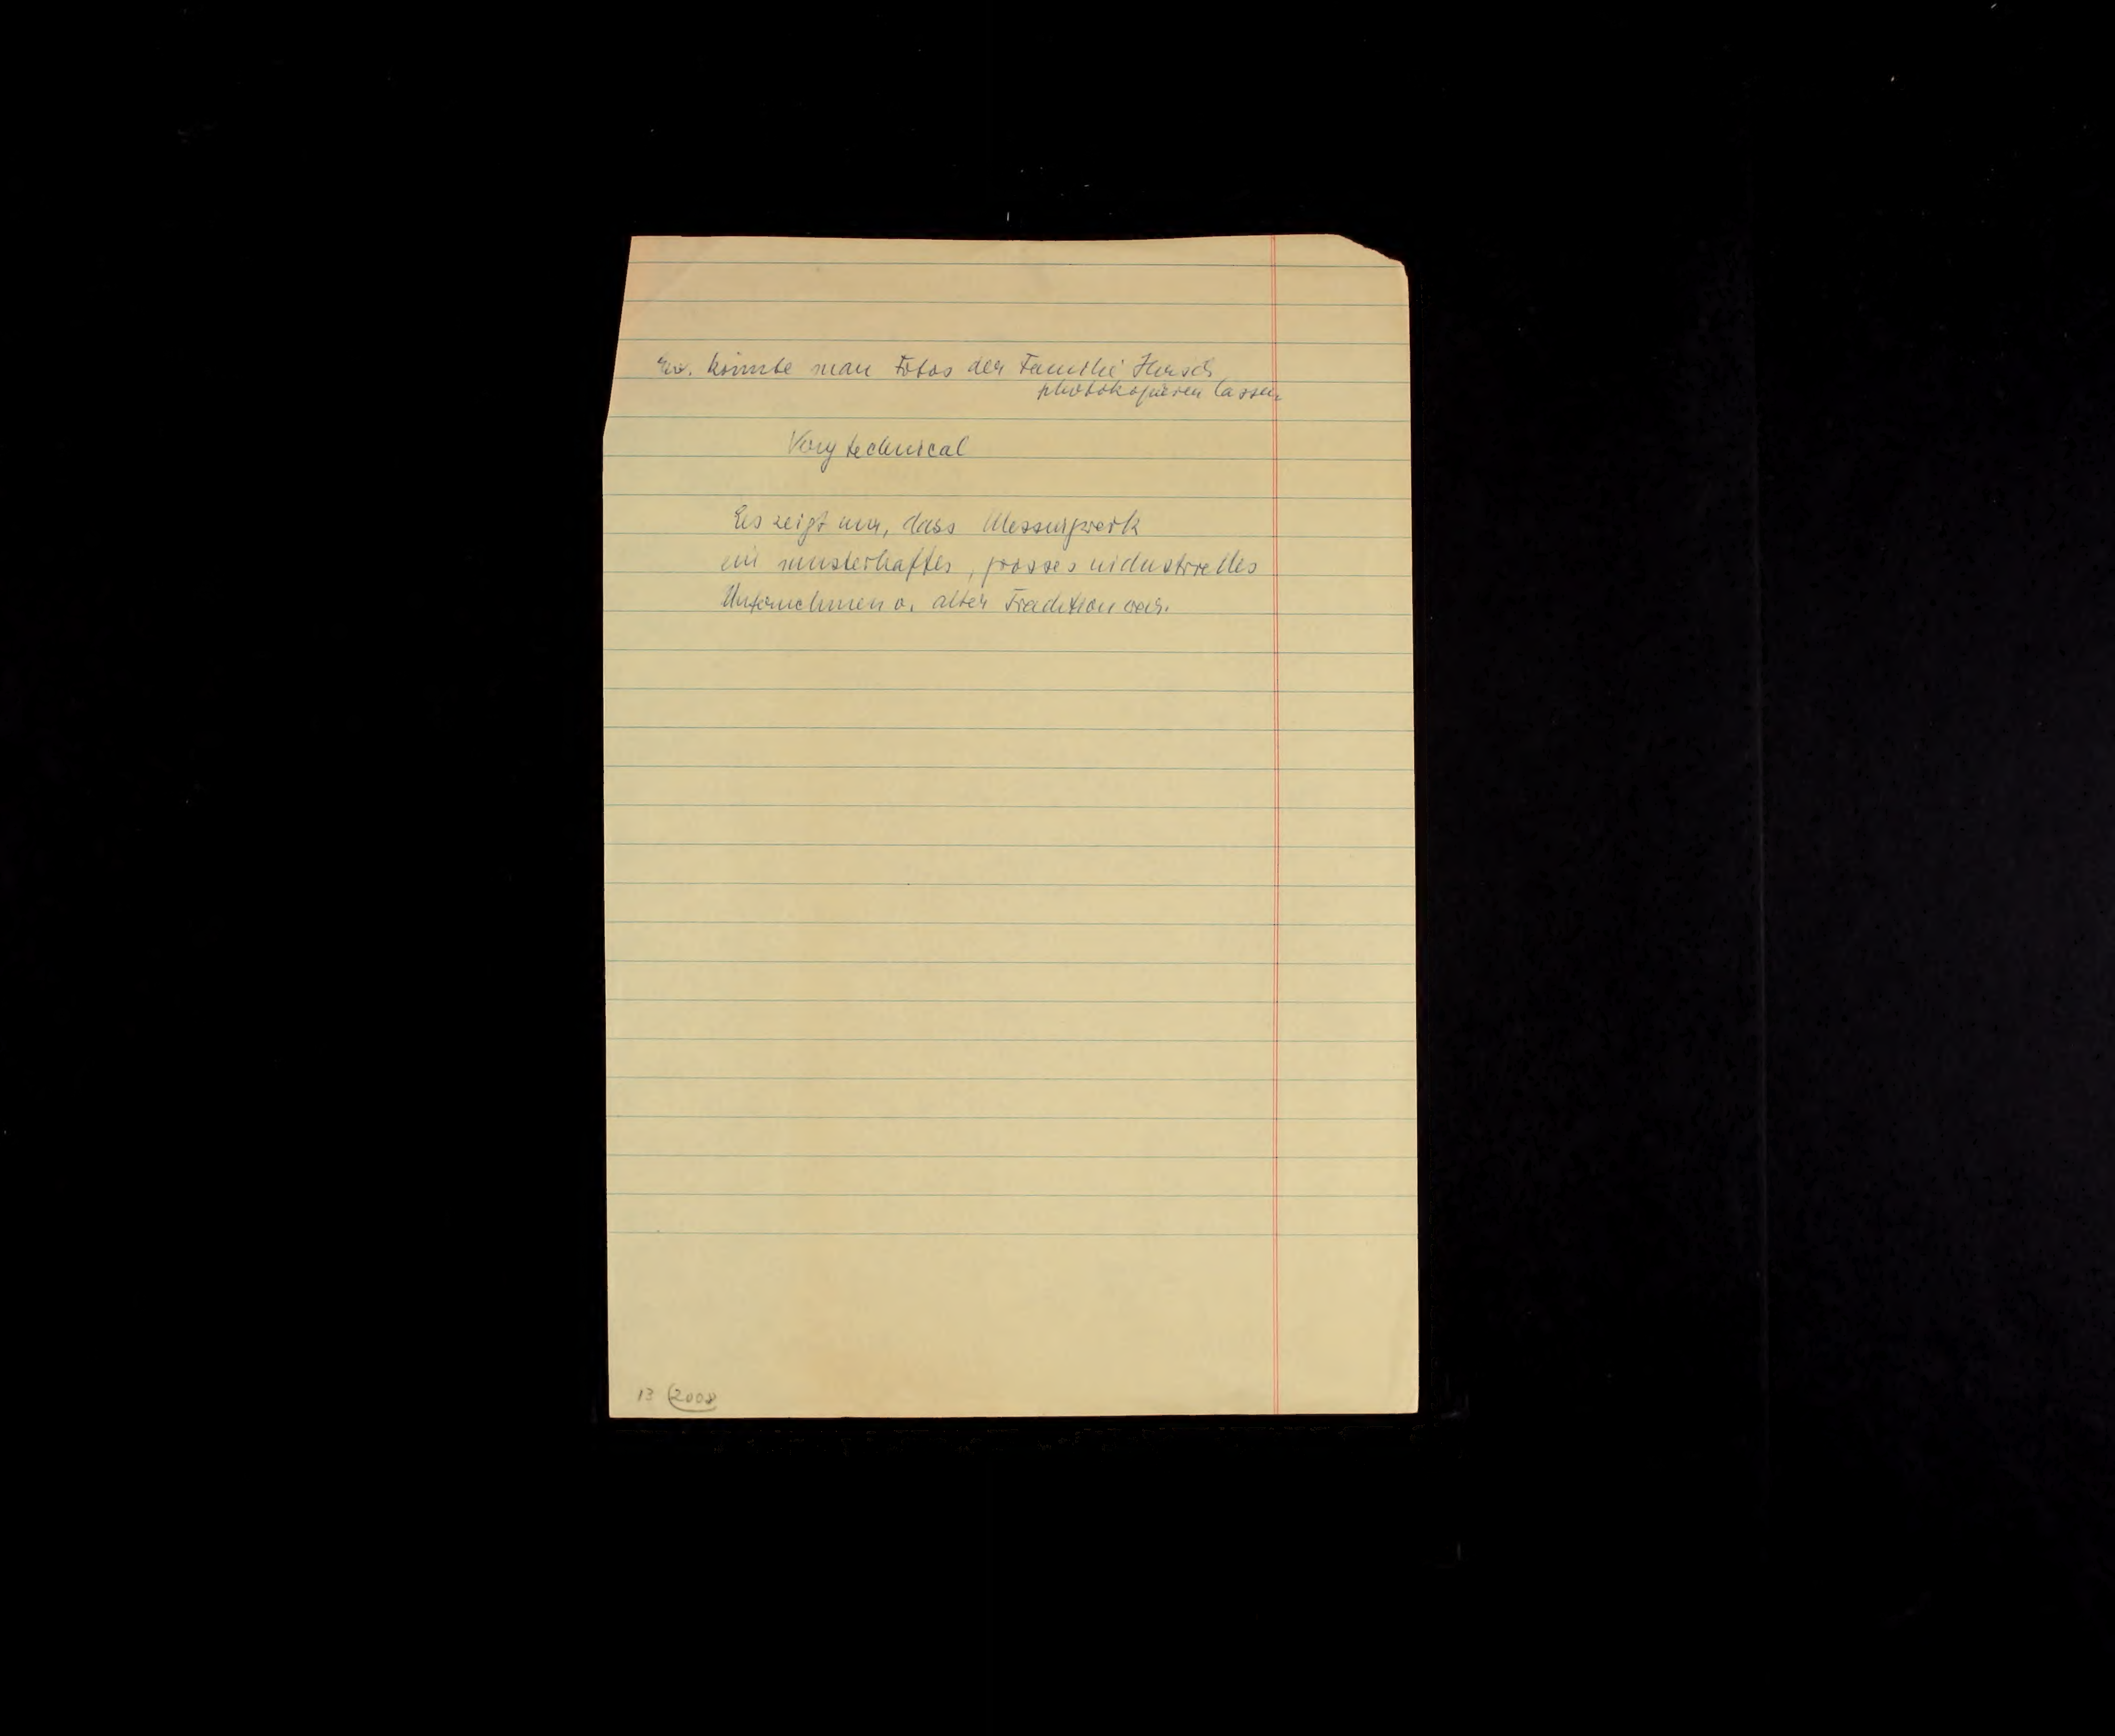 Ev. könnte man Fotos der Familie Hirsch
photokopieren lassen
Very technical
Es zeigt nur, dass Messingwerk
ein musterhaftes, grosses industrielles
Unternehmen v. alter Tradition war.
13 (2008